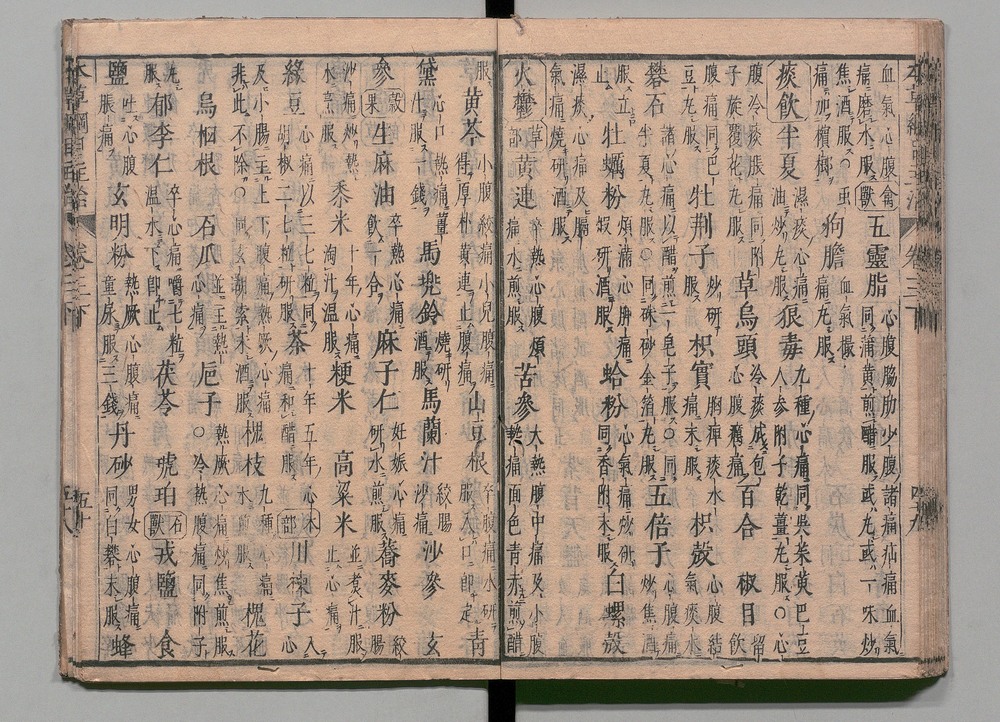 血氣心腹
痛磨水服
禽獸
五靈脂
心腹脇肋少腹諸痛疝痛血氣
同蒲黃煎醋服或丸或一味炒
焦酒服○虫
痛加檳榔
狗膽
血氣撮
痛丸服
痰飲
半夏
濕痰心痛
油炒丸服
狼毒
九種心痛同吳茱萸巴豆
人參附子乾薑丸服○心
腹冷痰脹痛同附
子旋覆花丸服
草烏頭
冷痰成包
心腹㽲痛
百合
椒目
留
飲
腹痛同巴
豆丸服
牡荊子
炒研
服
枳實
胸痺痰水
痛末服
枳殼
心腹結
氣痰水
礬石
諸心痛以醋煎一皂子服○同
半夏丸服○同硃砂金箔丸服
五倍子
心腹痛
炒焦酒
服立
止
牡蠣粉
煩滿心脾痛
煅研酒服
蛤粉
心氣痛炒研
同香附末服
白螺殼
濕痰心痛及膈
氣痛燒研酒服
火鬱
草部
黃連
卒熱心腹煩
痛水煎服
苦參
大熱腹中痛及小腹
熱痛面色青赤煎醋
服
黃芩
小腹絞痛小兒腹痛
得厚朴黃連止腹痛
山豆根
卒腹痛水研
服入口即定
青
黛
心口熱痛薑
汁服一錢
馬兜鈴
燒研
酒服
馬蘭汁
絞腸
沙痛
沙參
玄
參
穀果
生麻油
卒熱心痛
飲一合
麻子仁
妊娠心痛
研水煎服
蕎麥粉
絞
腸
沙痛炒熱
水烹服
黍米
十年心痛
淘汁溫服
粳米
高粱米
並煮汁服
止心痛
綠豆
心痛以三七粒同
胡椒二七粒研服
茶
十年五年心
痛和醋服
木部
川楝子
入
心
及小腸主上下腹痛熱厥心痛
非此不除○同玄胡索末酒服
槐枝
九種心痛
煎水服
槐花
烏桕根
石瓜
並主熱
心痛
巵子
熱厥心痛炒焦煎服
○冷熱腹痛同附子
丸
服
郁李仁
卒心痛嚼七粒
溫水下即止
茯苓
琥珀
石獸
戎鹽
食
鹽
吐心腹
脹痛
玄明粉
熱厥心腹痛
童尿服三錢
丹砂
男女心腹痛
同白礬末服
蜂